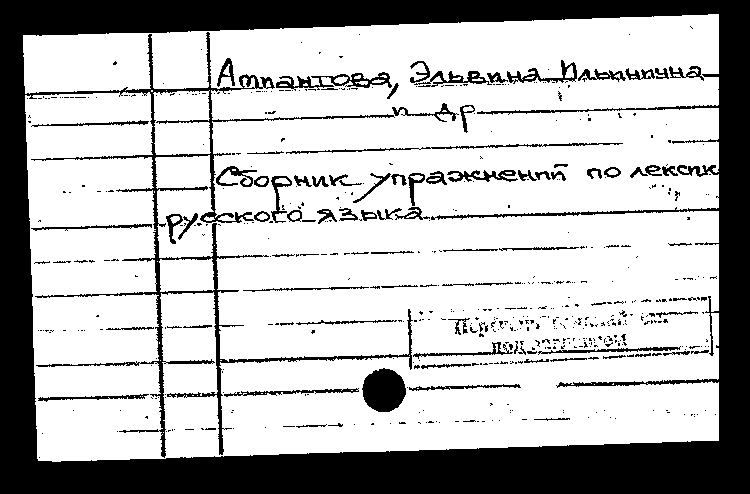 Амиантова, Эльвина Ильинична
и др
Сборник упражнений по лексик
русского языка
под заглавием